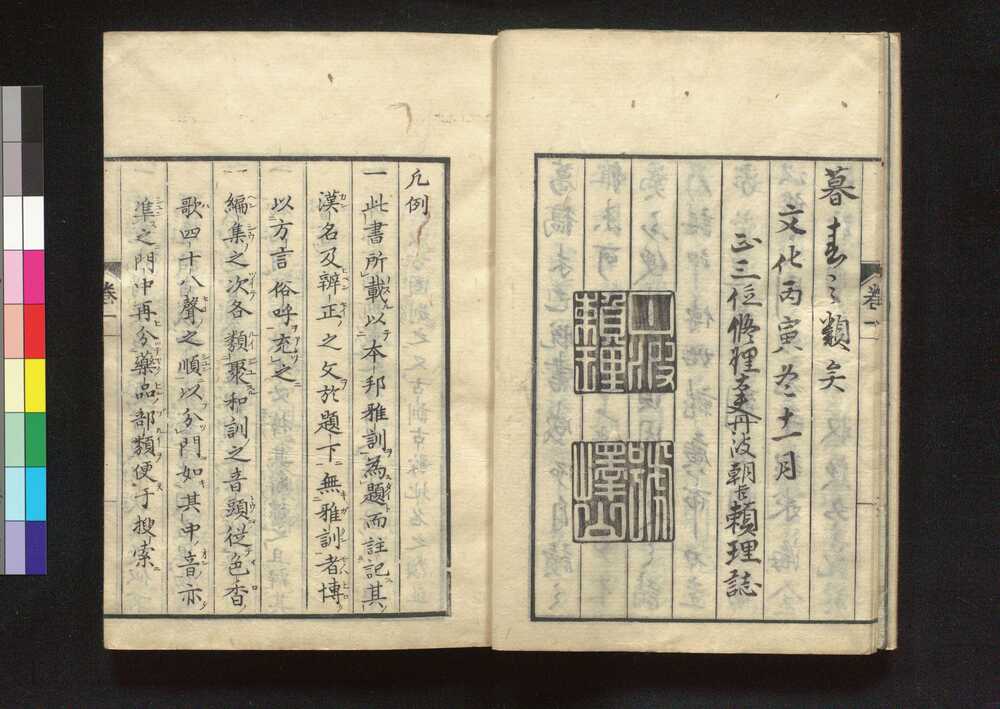 卷一
暮春之類矣
文化丙寅冬十一月
正三位修理大夫丹波朝臣賴理誌
丹波
賴理
凡例
一此書所載以本邦雅訓為題而註記其
漢名及辨正之文於題下無雅訓者博
以方言俗呼充之
一編集之次各類聚和訓之音頭從色香
歌四十八聲之順以分門如其中音亦
準之門中再分藥品部類便于搜索
卷一